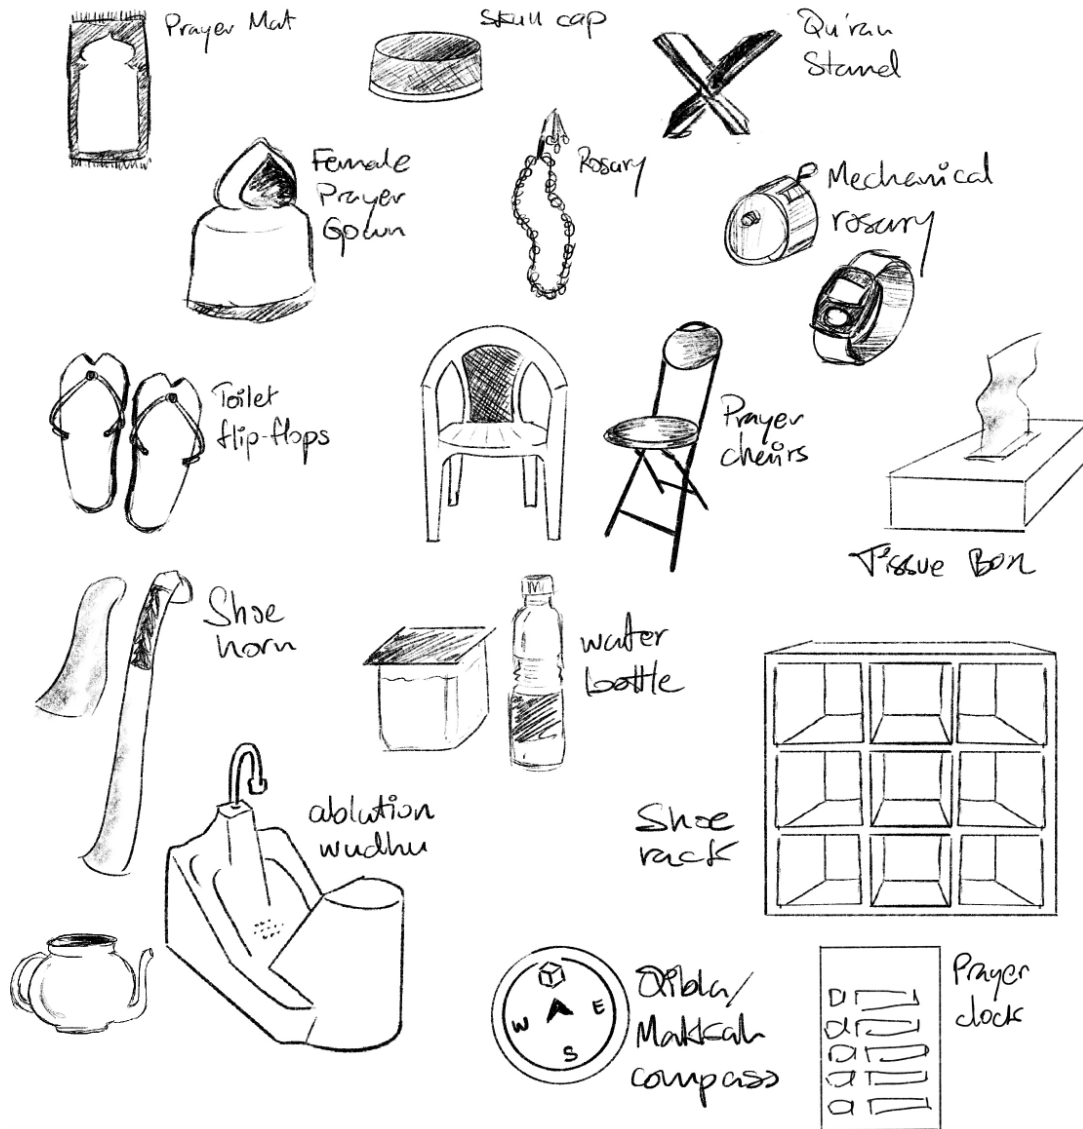 Prayer Mat
Skull cap
Qu'ran
Stand
Female
Prayer
Gown
Rosary
Mechanical
rosary
Toilet
flip-flops
Prayer
chairs
Tissue Box
Shoe
horn
water
bottle
ablution
wudhu
Shoe
rack
W
E
S
Qibla/
Makkah
compass
Prayer
clock